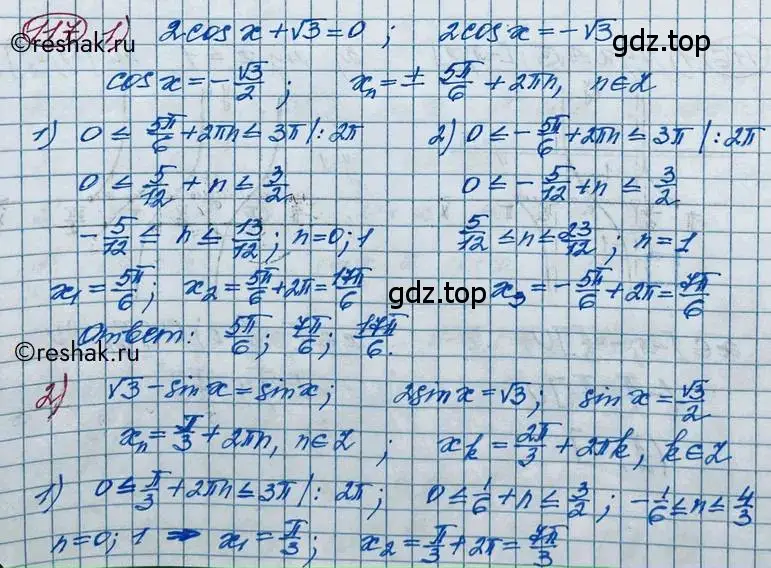 117 1) 2cos x + √3 = 0 ; 2cos x = -√3
©reshak.ru
gdz.top
cos x = -√3/2 ; xₙ = ± 5π/6 + 2πn, n∈Z
1) 0 ≤ 5π/6 + 2πn ≤ 3π |: 2π 2) 0 ≤ -5π/6 + 2πn ≤ 3π |: 2π
0 ≤ 5/12 + n ≤ 3/2 0 ≤ -5/12 + n ≤ 3/2
-5/12 ≤ n ≤ 13/12 ; n = 0; 1 5/12 ≤ n ≤ 23/12 ; n = 1
x₁ = 5π/6 ; x₂ = 5π/6 + 2π = 17π/6 gdz.top x₃ = -5π/6 + 2π = 7π/6
Ответ: 5π/6 ; 7π/6 ; 17π/6.
©reshak.ru
2) √3 - sin x = sin x ; 2sin x = √3 ; sin x = √3/2
xₙ = π/3 + 2πn, n∈Z ; xₖ = 2π/3 + 2πk, k∈Z
1) 0 ≤ π/3 + 2πn ≤ 3π |: 2π ; 0 ≤ 1/6 + n ≤ 3/2 ; -1/6 ≤ n ≤ 4/3
n = 0; 1 ⇒ x₁ = π/3 ; x₂ = π/3 + 2π = 7π/3